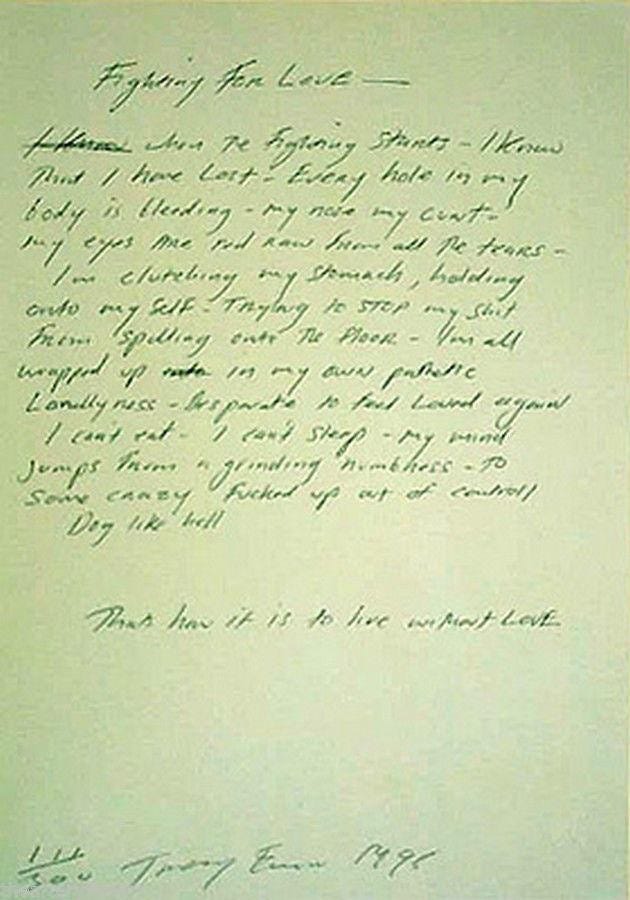 Fighting For Love —
I Know when The Fighting Starts - I Know
That I have Lost - Every hole in my
body is bleeding - my nose my cunt -
my eyes Are red raw From all The tears -
I'm clutching my stomach, holding
onto my self - Trying to STOP my shit
From spilling onto The Floor - I'm all
wrapped up in my own pathetic
Lonellyness - Desperate to Feel Loved again
I can't eat - I can't sleep - my mind
Jumps From a grinding numbness - TO
Some crazy Fucked up out of controll
Dog like hell
Thats how it is to live without LOVE
111/300 Tracey Emin 1998